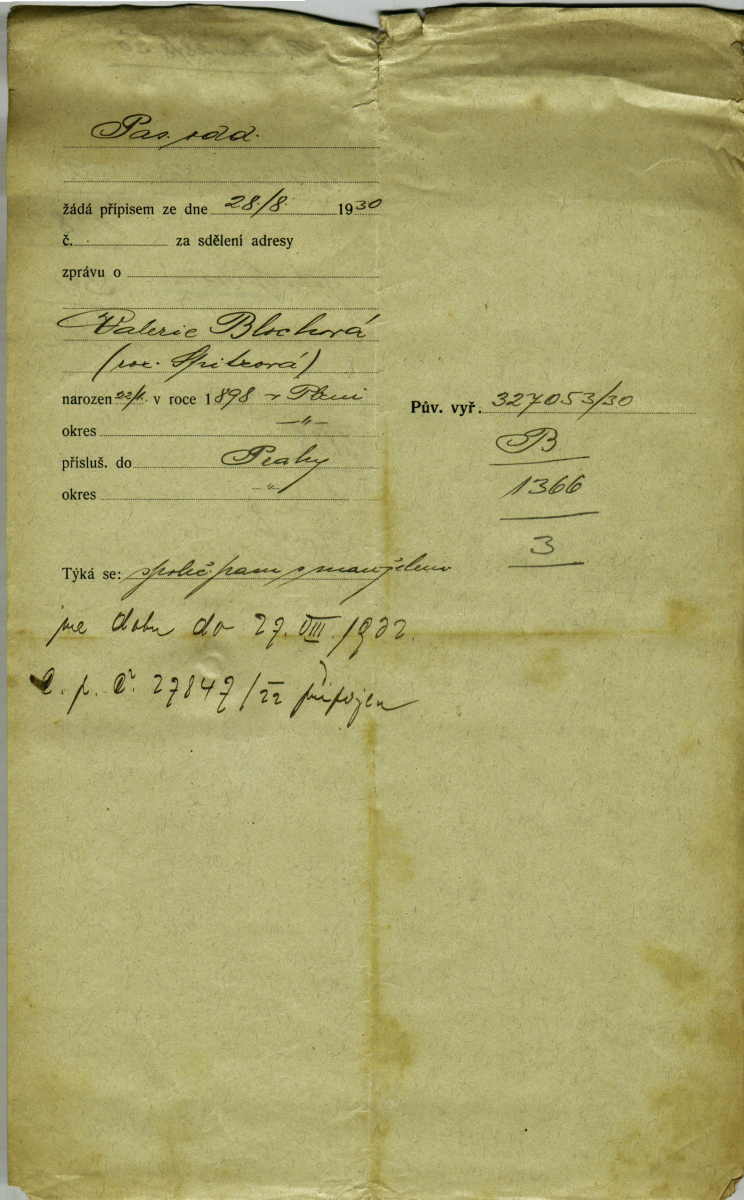 Pas. odd.
žádá přípisem ze dne 28/8. 1930
č. za sdělení adresy
zprávu o
Valerie Blochová
(roz. Spitzová)
narozen v roce 1898 v Plzni
okres -"-
přísluš. do Prahy
okres -"-
Týká se: společ. pasu s manželem
na dobu do 27. VIII. 1932.
č. 27847/22 připojen
Pův. vyř. 327053/30
B
1366
3